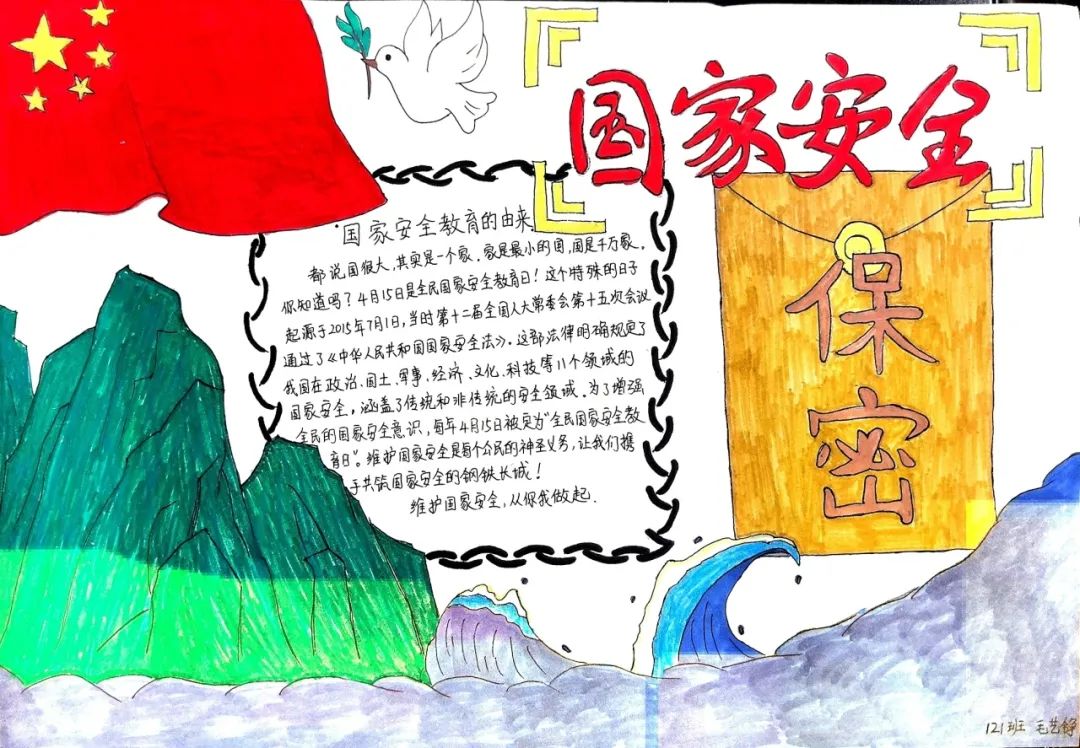 国家安全
保密
国家安全教育的由来
都说国很大,其实是一个家。家是最小的国,国是千万家。
你知道吗?4月15日是全民国家安全教育日!这个特殊的日子
起源于2015年7月1日,当时第十二届全国人大常委会第十五次会议
通过了《中华人民共和国国家安全法》。这部法律明确规定了
我国在政治、国土、军事、经济、文化、科技等11个领域的
国家安全,涵盖了传统和非传统的安全领域。为了增强
全民的国家安全意识,每年4月15日被定为"全民国家安全教
育日"。维护国家安全是每个公民的神圣义务,让我们携
手共筑国家安全的钢铁长城!
维护国家安全,从你我做起.
121班 毛艺铮